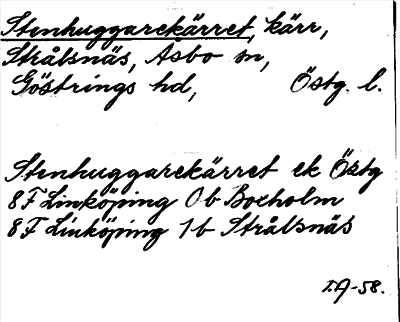 Stenhuggarekärret, kärr,
Strålsnäs, Asbo sn,
Göstrings hd, Östg. l.
Stenhuggarekärret ek Östg
8F Linköping 0b Boxholm
8F Linköping 1b Strålsnäs
T.A-58.